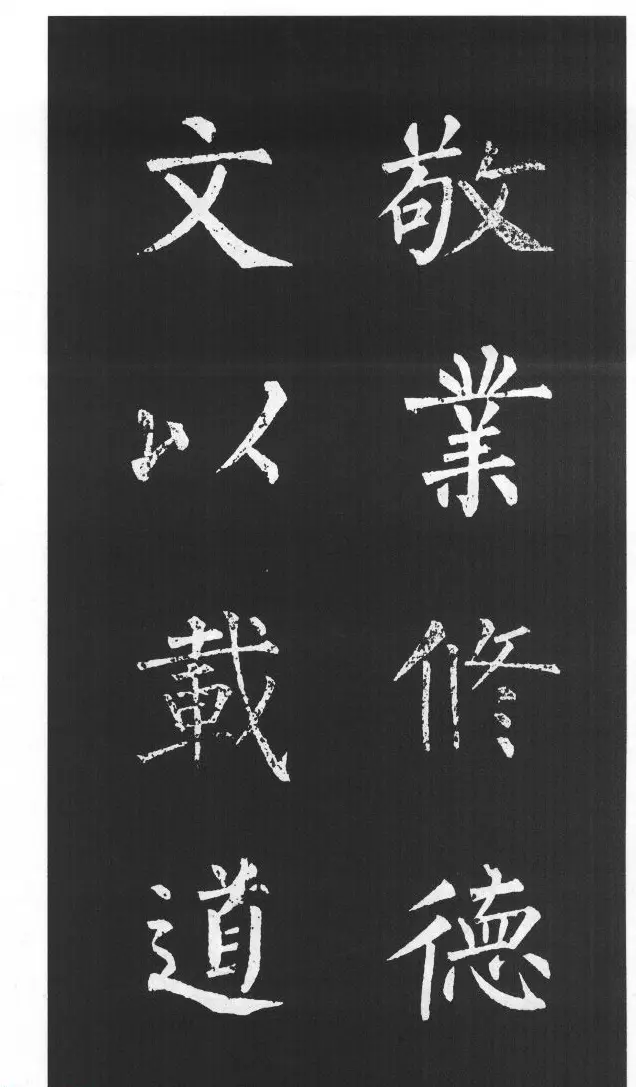 敬業修德
文以載道